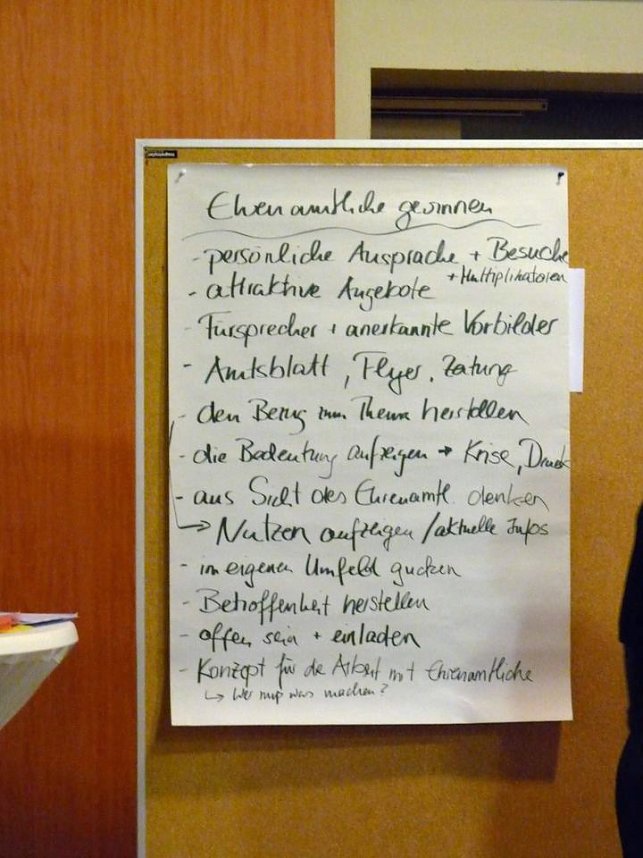 Ehrenamtliche gewinnen
- persönliche Ansprache + Besuche
+ Multiplikatoren
- attraktive Angebote
- Fürsprecher + anerkannte Vorbilder
- Amtsblatt, Flyer, Zeitung
- den Bezug zum Thema herstellen
- die Bedeutung aufzeigen → Krise, Druck
- aus Sicht des Ehrenamtl. denken
→ Nutzen aufzeigen / aktuelle Infos
- im eigenen Umfeld gucken
- Betroffenheit herstellen
- offen sein + einladen
- Konzept für die Arbeit mit Ehrenamtliche
↳ Wer muss was machen?